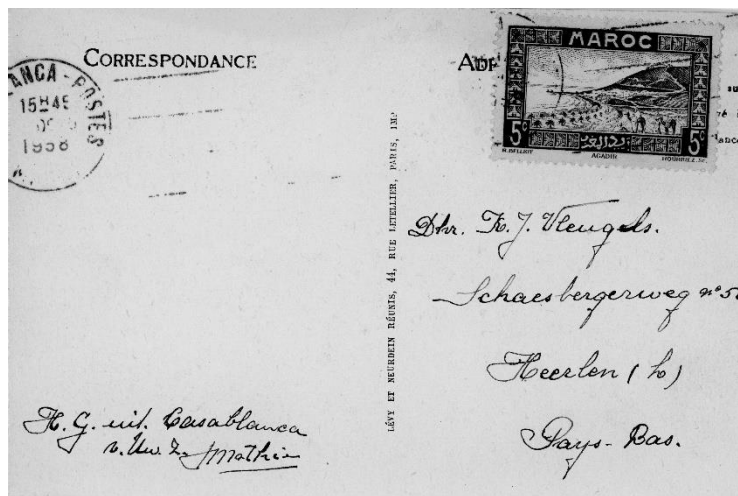 CORRESPONDANCE
ANCA-POSTES
15H45
1938
MAROC
5c 5c
AGADIR
LÉVY ET NEURDEIN RÉUNIS, 44, RUE LETELLIER, PARIS, IMP
Dhr. H. J. Vleugels.
Schaesbergerweg n° 5
Heerlen (h)
Pays-Bas.
H. G. uit. Casablanca
v. Uw. Z. Mathieu